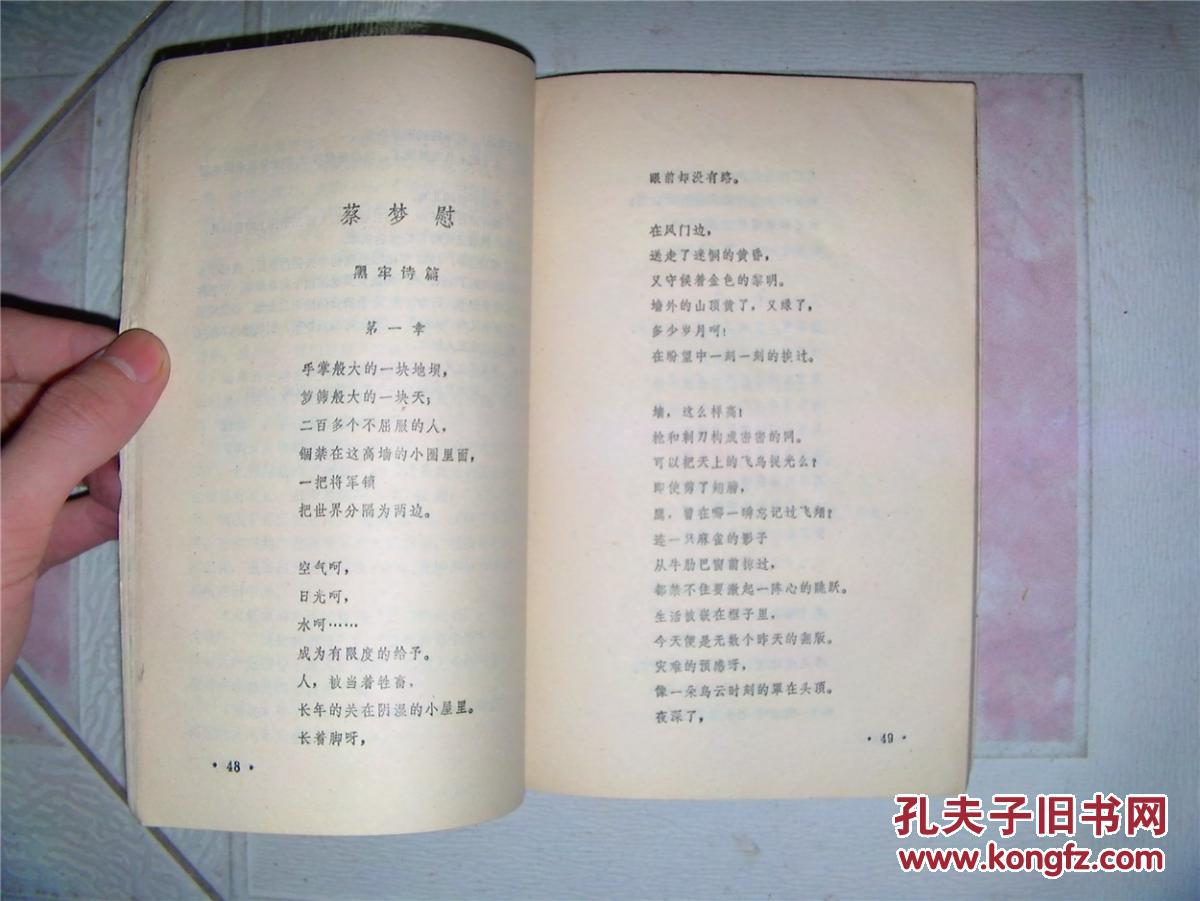 蔡梦慰
黑牢诗篇
第一章
手掌般大的一块地坝，
箩筛般大的一块天；
二百多个不屈服的人，
锢禁在这高墙的小圈里面，
一把将军锁
把世界分隔为两边。
空气呵，
日光呵，
水呵……
成为有限度的给予。
人，被当着牲畜，
长年的关在阴湿的小屋里。
长着脚呀，
·48·
眼前却没有路。
在风门边，
送走了迷惘的黄昏，
又守候着金色的黎明。
墙外的山顶黄了，又绿了，
多少岁月呵！
在盼望中一刻一刻的挨过。
墙，这么样高！
枪和刺刀构成密密的网。
可以把天上的飞鸟捉光么？
即使剪了翅膀，
鹰，曾在哪一瞬忘记过飞翔？
连一只麻雀的影子
从牛肋巴窗前掠过，
都禁不住要激起一阵心的跳跃。
生活被嵌在框子里，
今天便是无数个昨天的翻版。
灾难的预感呀，
像一朵乌云时刻的罩在头顶。
夜深了，
·49·
孔夫子旧书网
www.kongfz.com